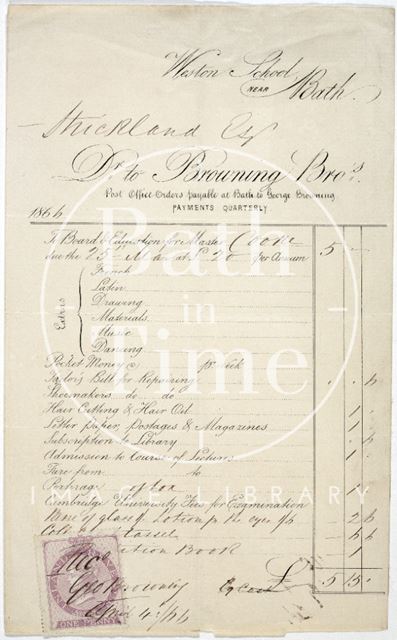 Weston School,
NEAR Bath.
Strickland Esqr
Dr. to Browning Bros.
Post Office Orders payable at Bath to George Browning
PAYMENTS QUARTERLY
1866
To Board & Education for Master Cooke 5 —
due the 25th March at £20 per Annum
Extras
French
Latin
Drawing
Materials
Music
Dancing
Pocket Money @ pr. Week
Tailor's Bill for Repairing 6
Shoemakers do do
Hair Cutting & Hair Oil 1
Letter paper, Postages & Magazines 1
Subscription to Library 6
Admission to Course of Lectures 1
Fare from to
Porterage of box 1
Cambridge University Fees for Examination
glass & Lotion for the eyes 2 6
Tassel
Book 1
£ 5 15
Geo Browning
April 4/66
ONE PENNY
Bath in Time
IMAGE LIBRARY